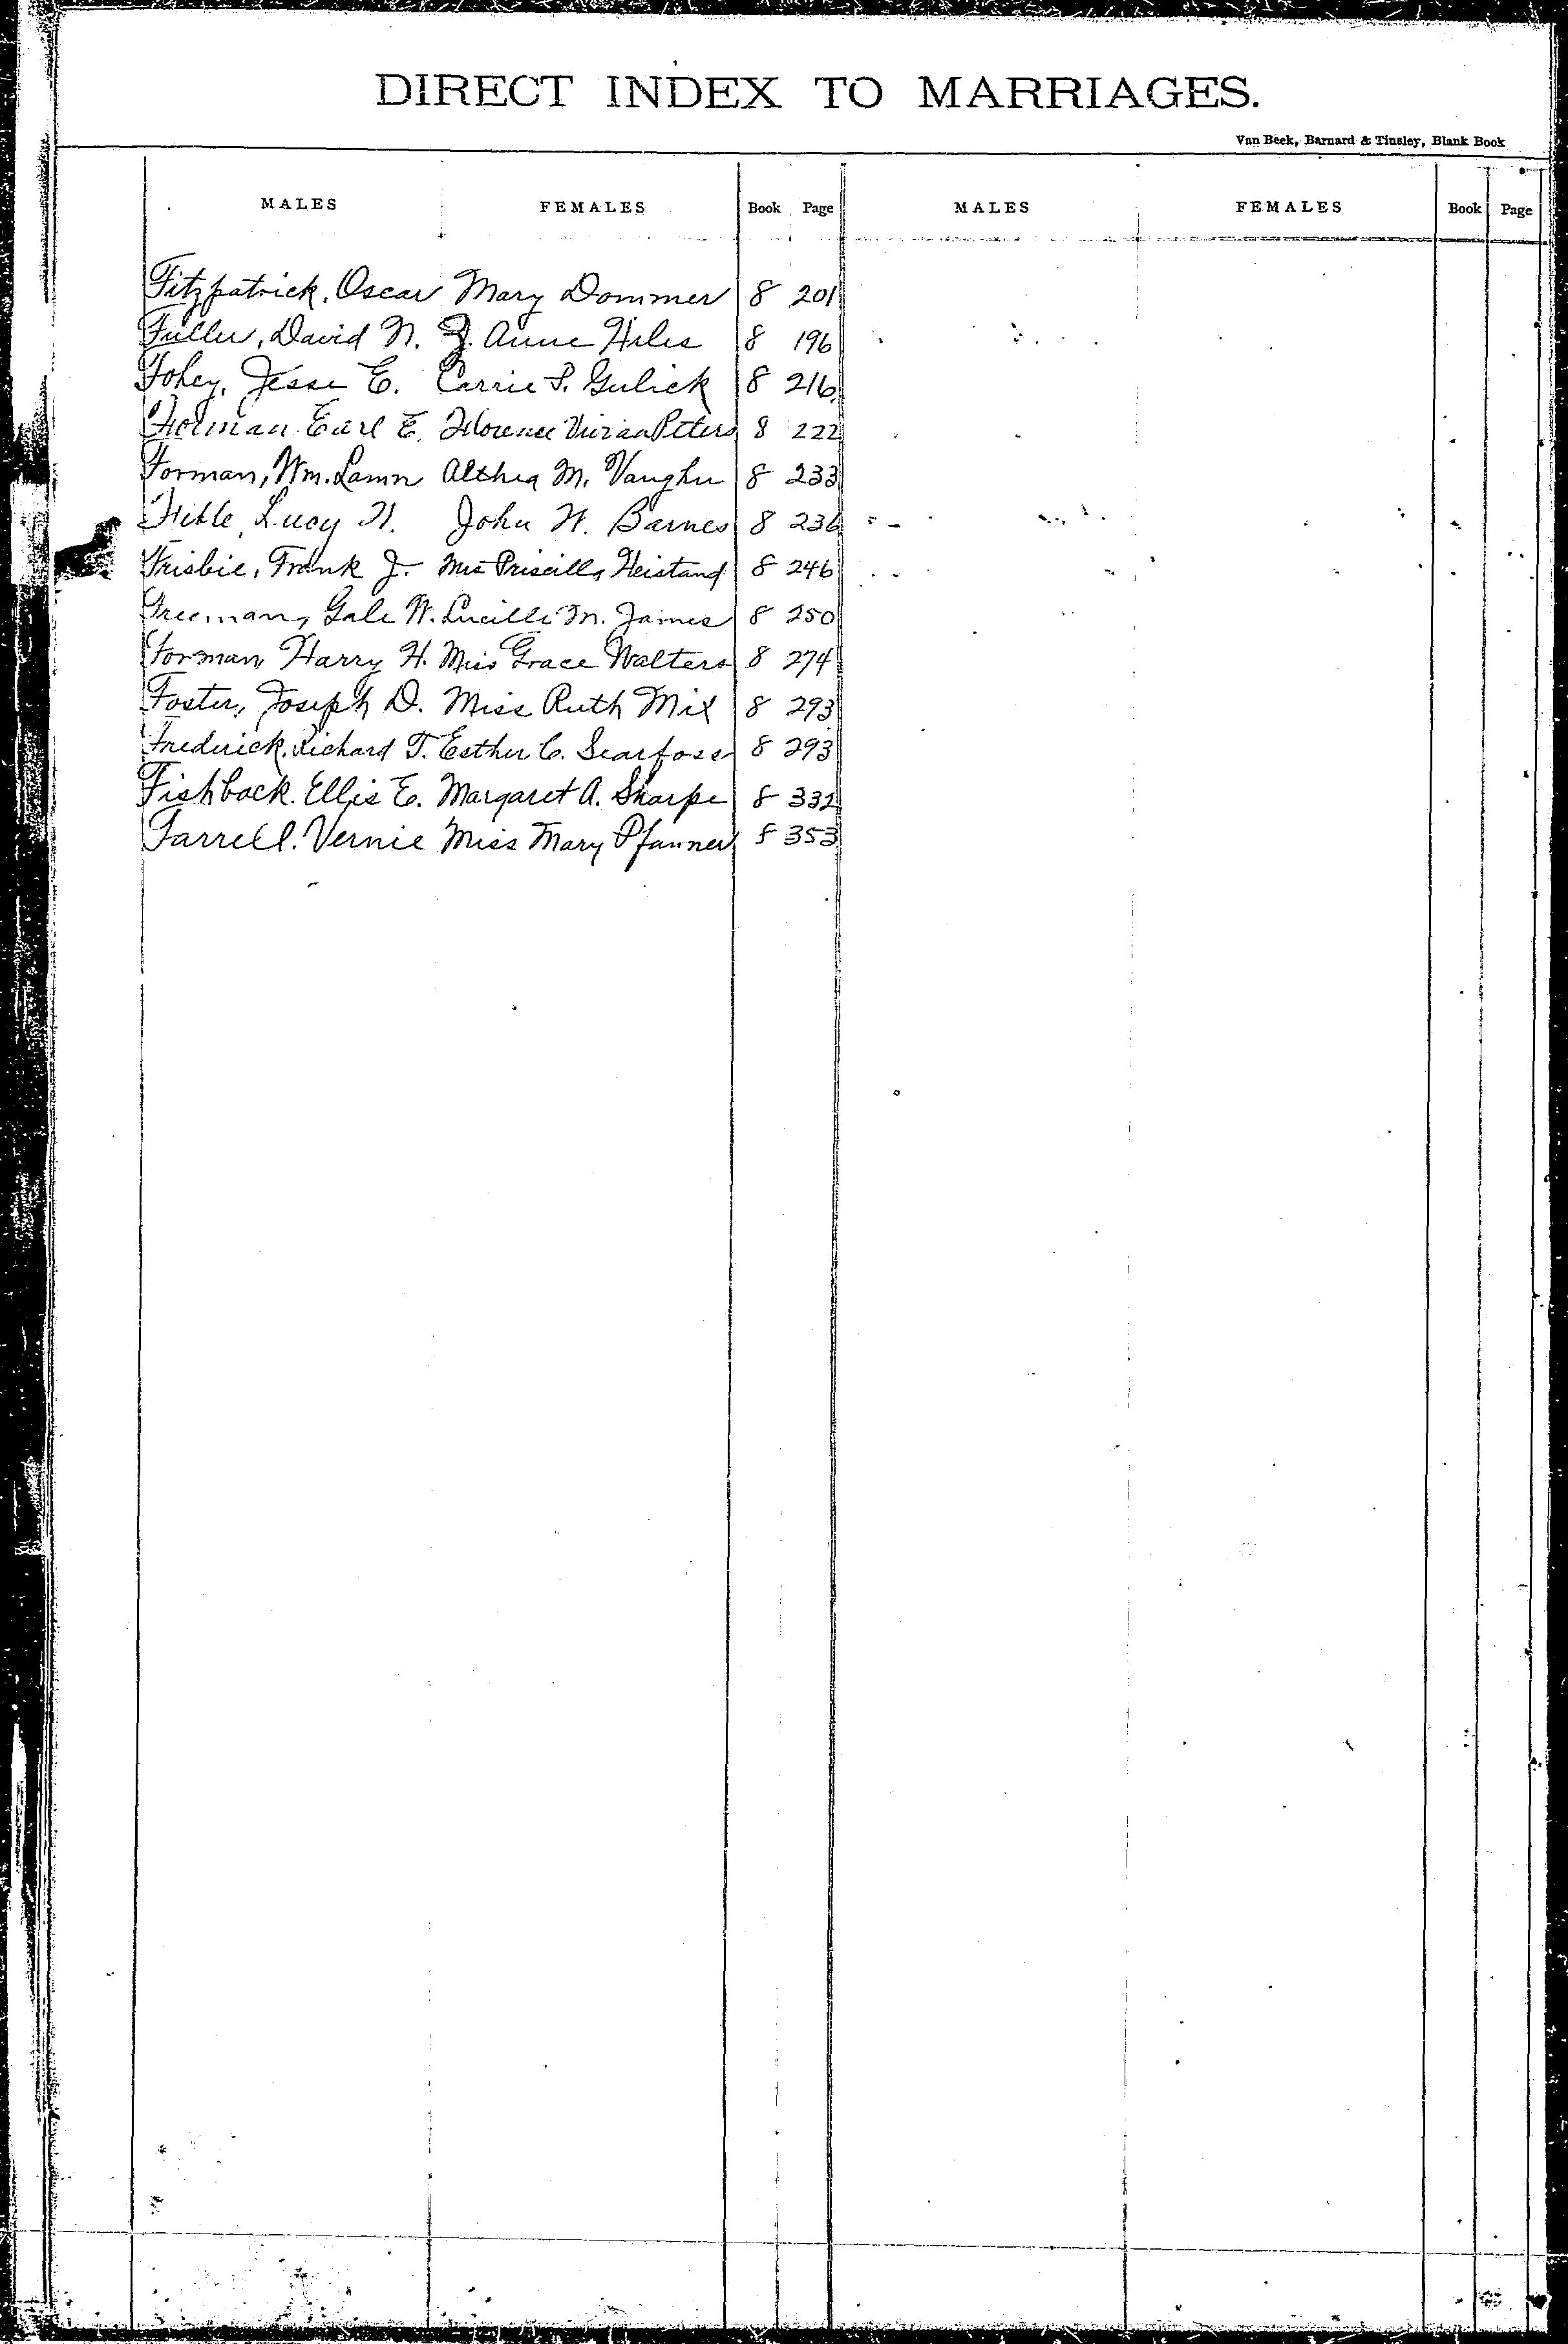 DIRECT INDEX TO MARRIAGES.
Van Beek, Barnard & Tinsley, Blank Book
MALES FEMALES Book Page MALES FEMALES Book Page
Fitzpatrick, Oscar Mary Dommer 8 201
Fuller, David N. J. Anne Hiles 8 196
Fohey, Jesse E. Carrie S. Gulick 8 216
Forman Earl E. Florence Vivian Peters 8 222
Forman, Wm. Lamn Althea M. Vaughn 8 233
Fible, Lucy N. John W. Barnes 8 236
Frisbie, Frank J. Mrs Priscilla Heistand 8 246
Freeman, Gale W. Lucille M. James 8 250
Forman, Harry H. Miss Grace Walters 8 274
Foster, Joseph D. Miss Ruth Mix 8 293
Frederick, Richard T. Esther C. Searfoss 8 293
Fishback. Ellis E. Margaret A. Sharpe 8 332
Farrell. Vernie Miss Mary Pfanner 8 353